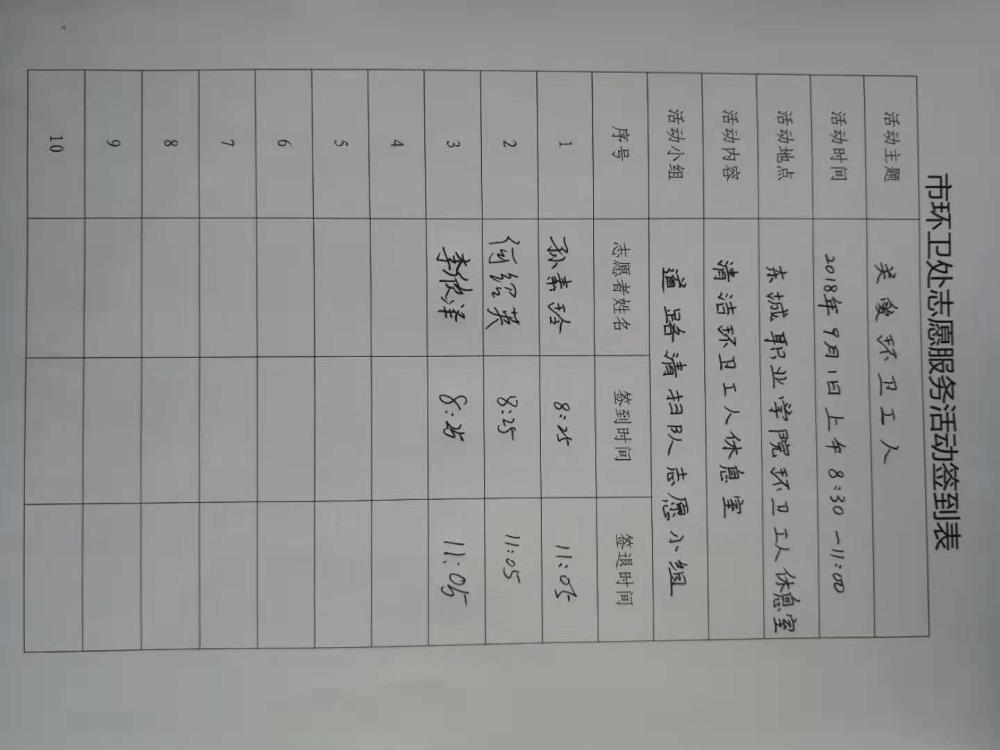 市环卫处志愿服务活动签到表
活动主题 关爱环卫工人
活动时间 2018年9月1日上午8:30-11:00
活动地点 东城职业学院环卫工人休息室
活动内容 清洁环卫工人休息室
活动小组 道路清扫队志愿小组
序号 志愿者姓名 签到时间 签退时间
1 孙素玲 8:25 11:05
2 何绍英 8:25 11:05
3 李欣泽 8:25 11:05
4
5
6
7
8
9
10